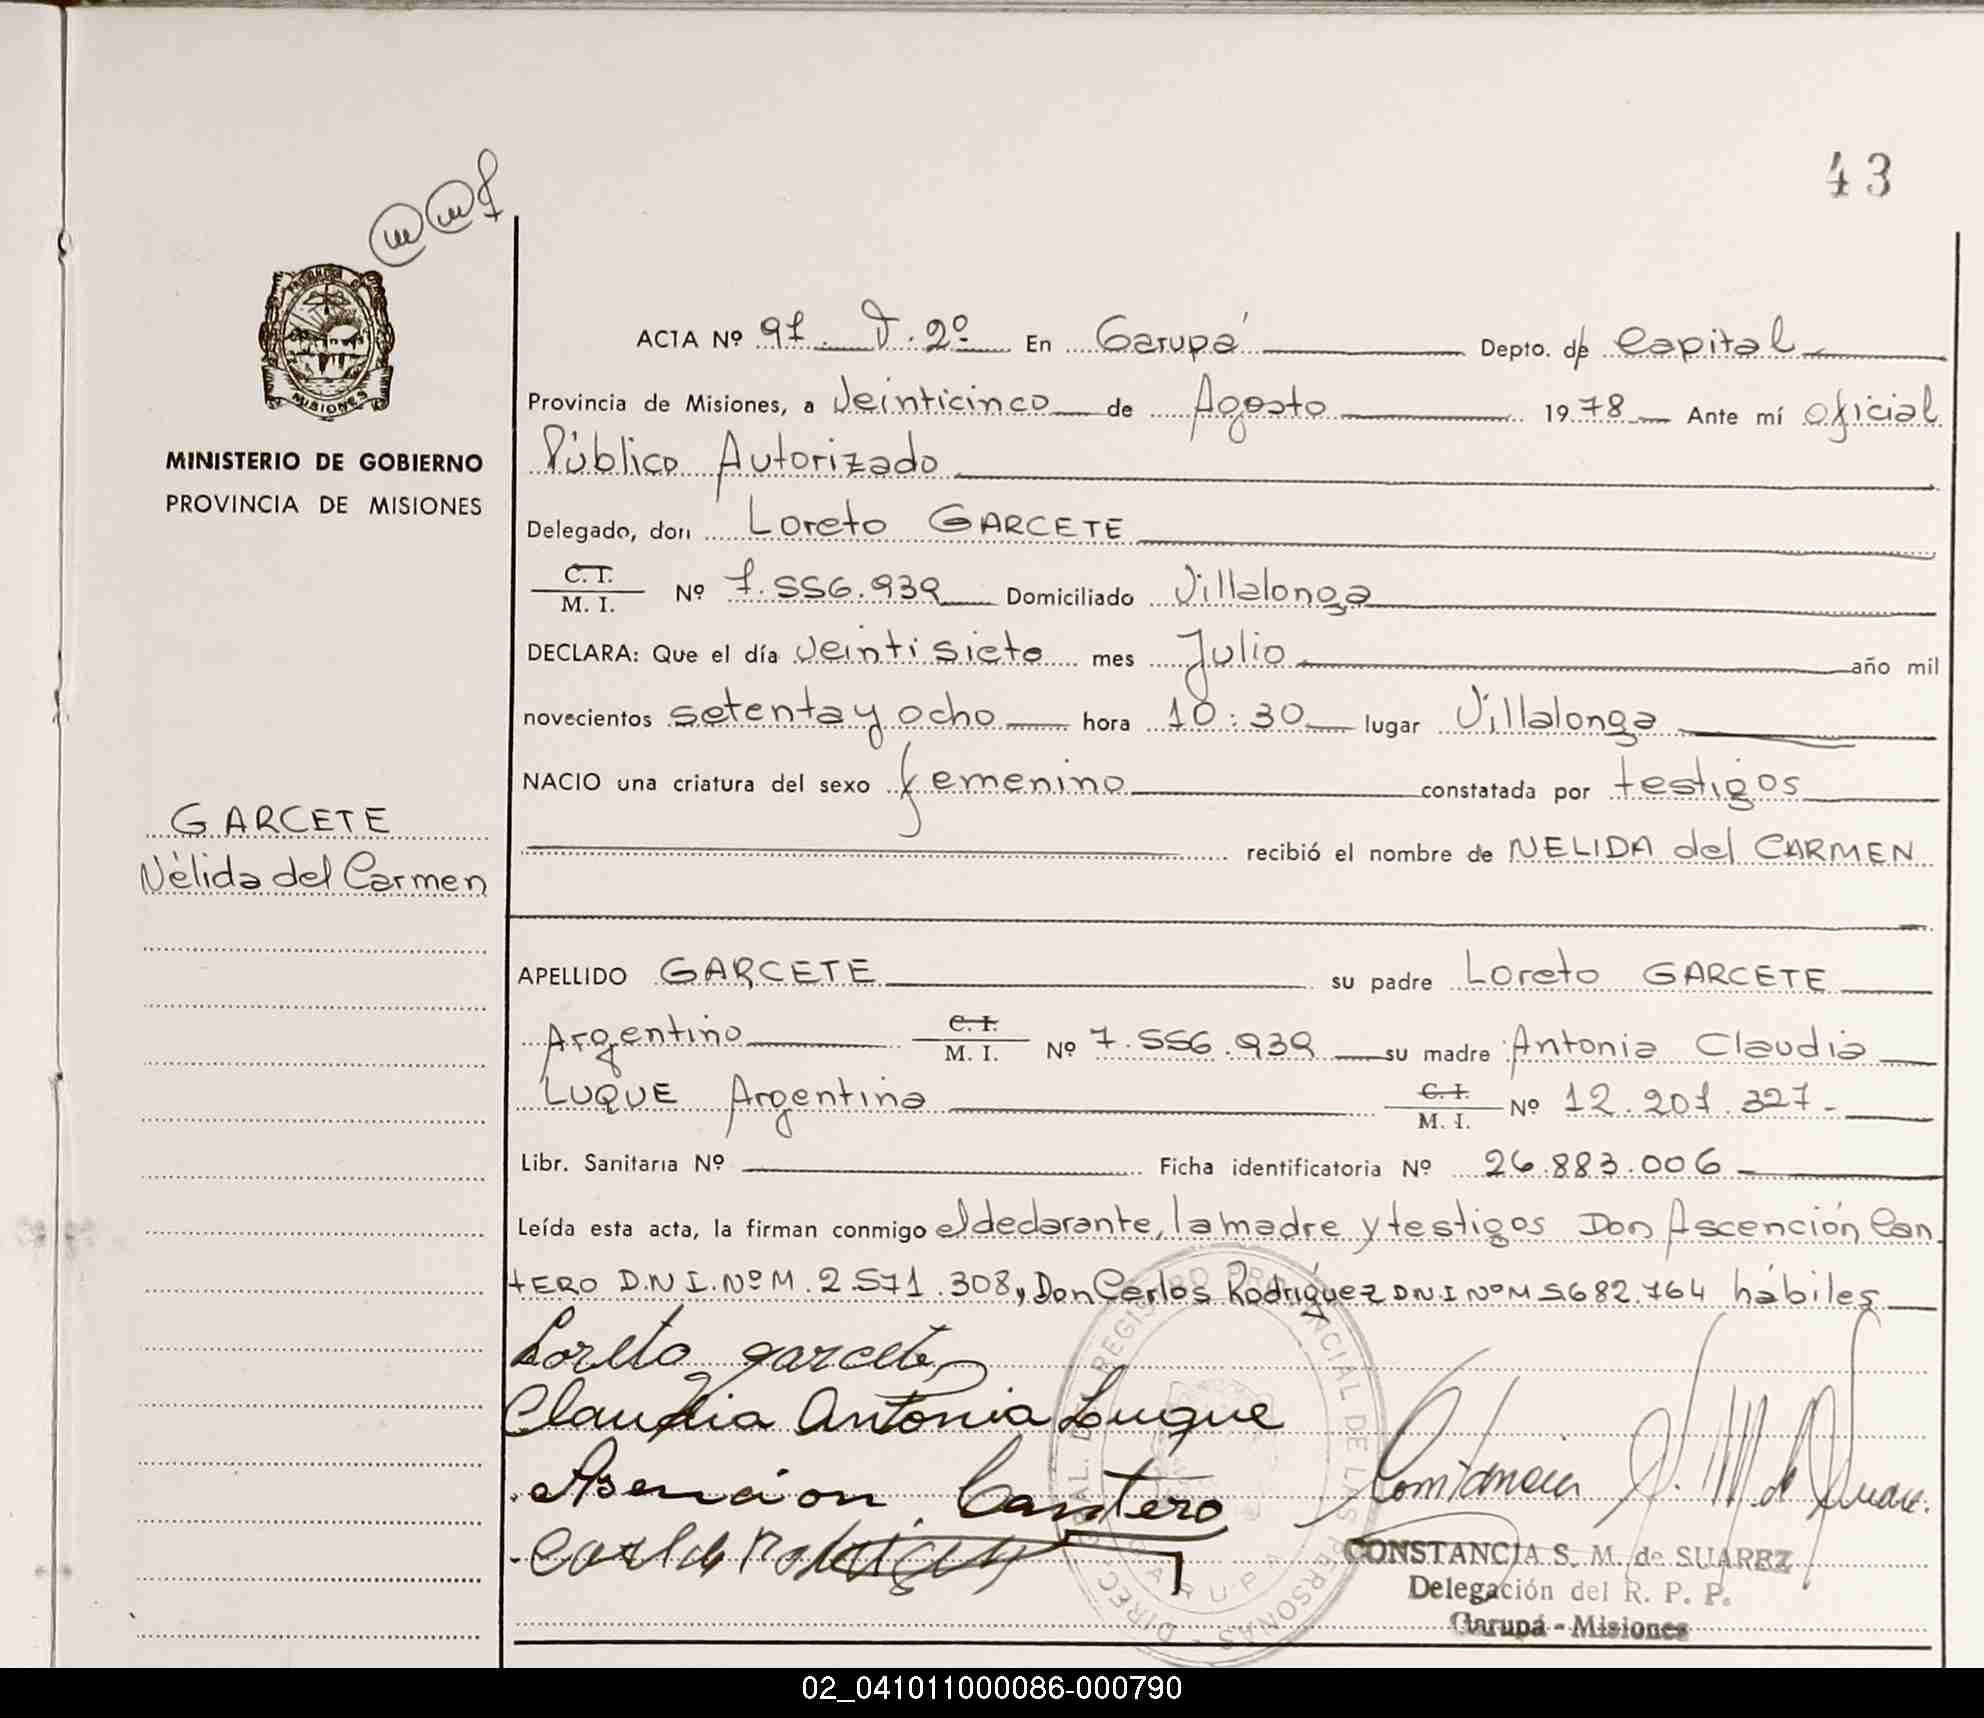 43
PROVINCIA DE
MISIONES
MINISTERIO DE GOBIERNO
PROVINCIA DE MISIONES
GARCETE
Nélida del Carmen
ACTA Nº 91. T. 2º En Garupá Depto. de Capital
Provincia de Misiones, a Veinticinco de Agosto 1978 Ante mí oficial
Público Autorizado
Delegado, don Loreto GARCETE
C.I. M. I. Nº 7.556.939 Domiciliado Villalonga
DECLARA: Que el día veintisiete mes Julio año mil
novecientos setenta y ocho hora 10:30 lugar Villalonga
NACIO una criatura del sexo femenino constatada por testigos
recibió el nombre de NELIDA del CARMEN
APELLIDO GARCETE su padre Loreto GARCETE
Argentino C.I. M. I. Nº 7.556.939 su madre Antonia Claudia
LUQUE Argentina C.I. M. I. Nº 12.201.327-
Libr. Sanitaria Nº Ficha identificatoria Nº 26.883.006
Leída esta acta, la firman conmigo el declarante, la madre y testigos Don Ascención Can
tERO D.N.I. Nº M. 2.571.308, Don Carlos Rodríguez D.N.I Nº M 5682.764 hábiles
Loreto garcete
Claudia Antonia Luque
Asencion Cantero
Carlos Rodriguez
Constancia S. M. de Suarez
DIREC. GRAL. DEL REGISTRO PROVINCIAL DE LAS PERSONAS
GARUPA
CONSTANCIA S. M. de SUAREZ
Delegación del R. P. P.
Garupá - Misiones
02_041011000086-000790